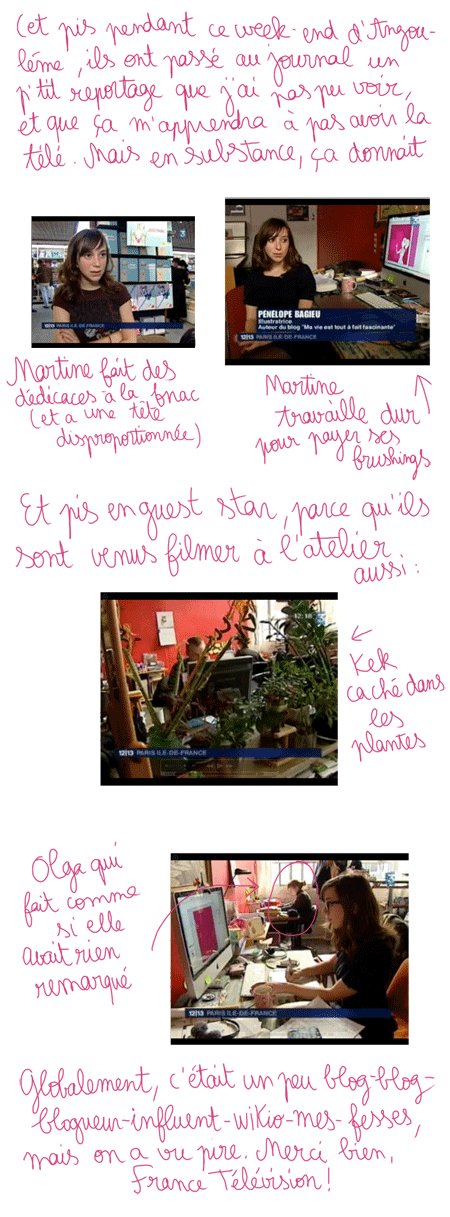 Et pis pendant ce week-end d'Angou-
lême, ils ont passé au journal un
p'tit reportage que j'ai pas pu voir,
et que ça m'apprendra à pas avoir la
télé. Mais en substance, ça donnait
12|13 PARIS ILE-DE-FRANCE
PÉNÉLOPE BAGIEU
Illustratrice
Auteur du blog "Ma vie est tout à fait fascinante"
12|13 PARIS ILE-DE-FRANCE
Martine fait des
dédicaces à la fnac
(et a une tête
disproportionnée)
Martine
travaille dur
pour payer ses
brushings
Et pis en guest star, parce qu'ils
sont venus filmer à l'atelier
aussi :
12:18
12|13 PARIS ILE-DE-FRANCE
Kek
caché dans
les
plantes
Olga qui
fait comme
si elle
avait rien
remarqué
12|13 PARIS ILE-DE-FRANCE
Globalement, c'était un peu blog-blog-
blogueur-influent-wikio-mes-fesses,
mais on a vu pire. Merci bien,
France Télévision !